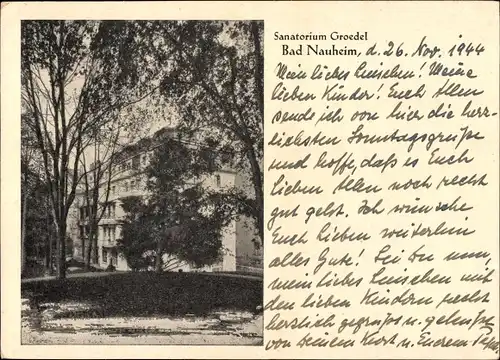 Sanatorium Groedel
Bad Nauheim, d. 26. Nov. 1944
Mein liebes Lieschen! Meine
lieben Kinder! Euch Allen
sende ich von hier die herz-
lichsten Sonntagsgrüße
und hoffe, daß es Euch
lieben Allen noch recht
gut geht. Ich wünsche
Euch lieben weiterhin
alles Gute! Sei Du nun,
mein liebes Lieschen mit
den lieben Kindern recht
herzlich gegrüßt u. geküßt
von Deinem u. Eurem